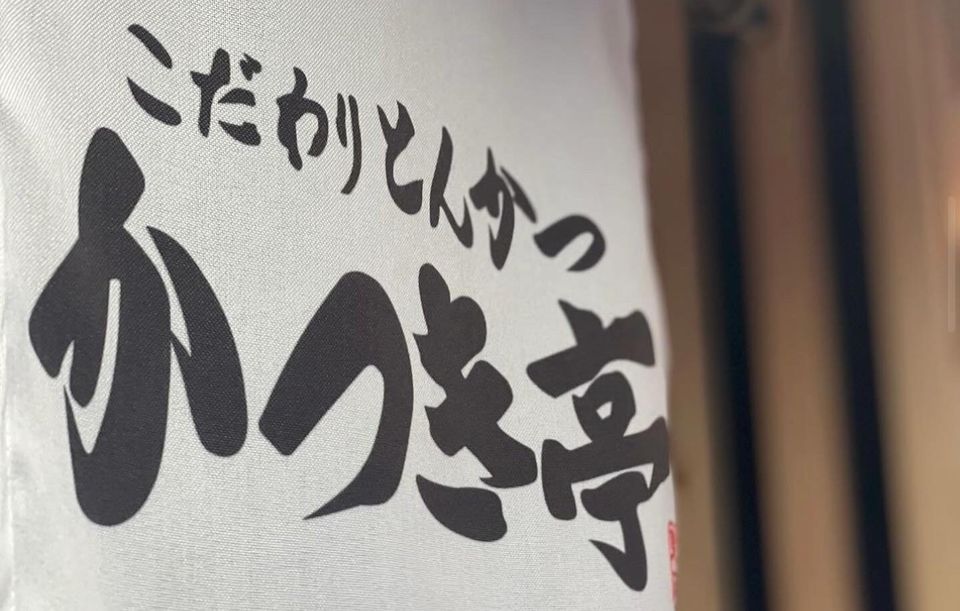 こだわりとんかつ
かつき亭